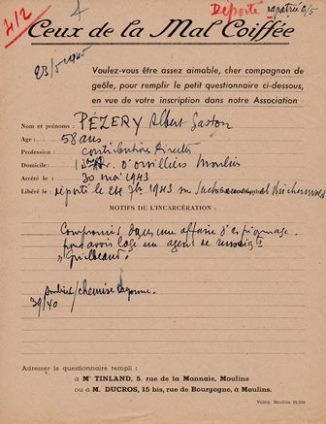 412
Déporté rapatrié
Ceux de la Mal Coiffée
23/5 1945
Voulez-vous être assez aimable, cher compagnon de
geôle, pour remplir le petit questionnaire ci-dessous,
en vue de votre inscription dans notre Association
Nom et prénoms : PÉZERY Albert Gaston
Age : 58 ans
Profession : contributions directes
Domicile : d'Orvilliers Moulins
Arrêté le : 30 mai 1943
Libéré le : déporté le 1943
NOTIFS DE L'INCARCÉRATION :
Compromis dans une affaire d'espionnage
pour avoir logé un agent de
39/40
Adresser le questionnaire rempli :
à Mr TINLAND, 5, rue de la Monnaie, Moulins
ou à M. DUCROS, 15 bis, rue de Bourgogne, à Moulins.